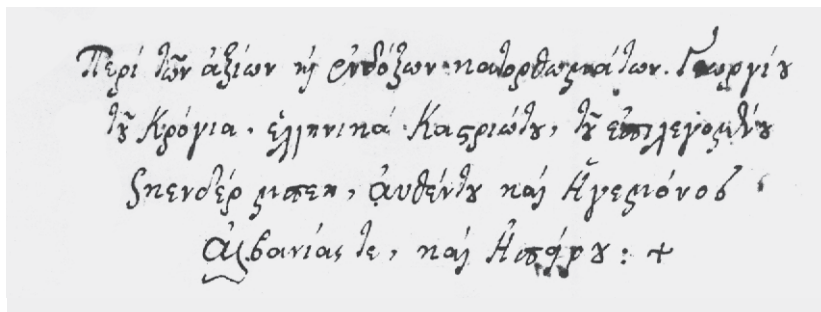 Περί τῶν ἀξίων κỳ ἐνδόξων κατορθωμάτων. Γεωργίου
τοῦ Κρόγια. ἑλληνικά Καστριώτου, τοῦ ἐπιλεγομένου
Σκενδέρ μπεη, ἀυθέντου καί Ἡγεμόνος
Ἀλβανίας τε, καί Ἠπήρου: +